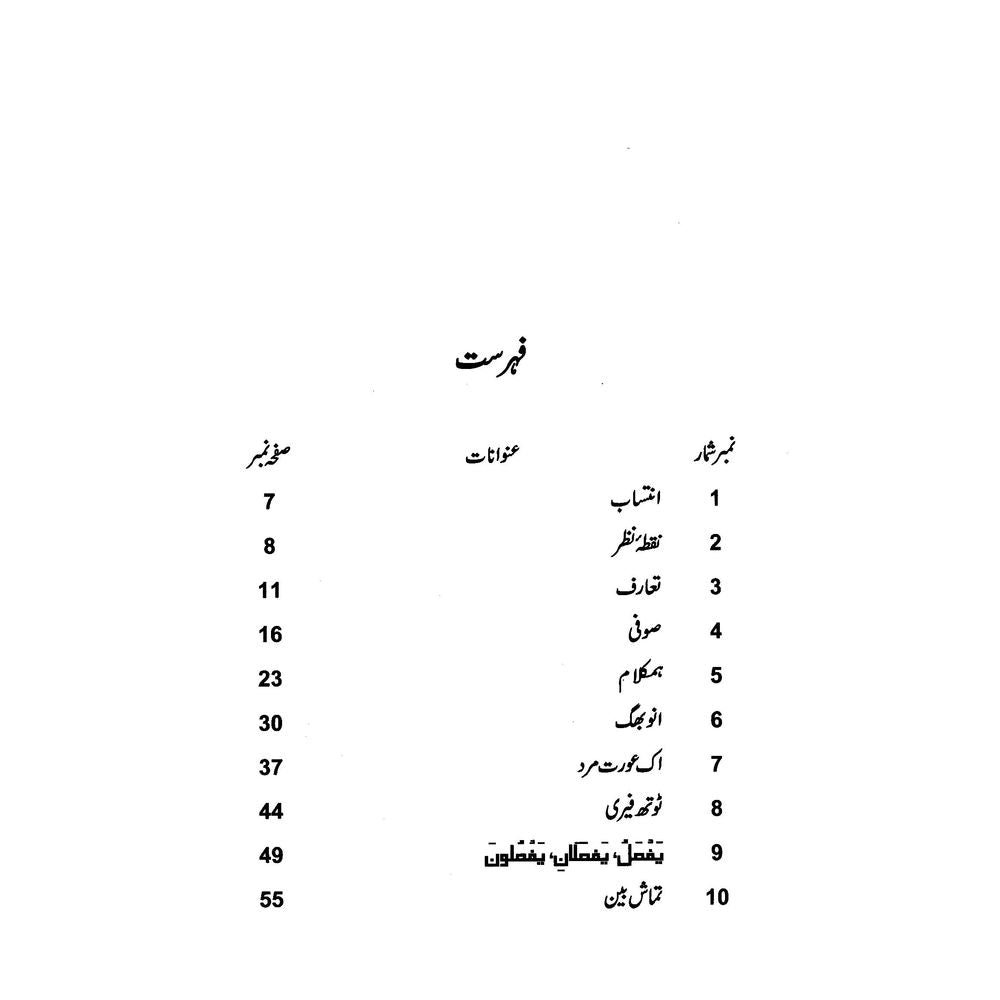 فہرست
نمبر شمار عنوانات صفحہ نمبر
1 انتساب 7
2 نقطۂ نظر 8
3 تعارف 11
4 صوفی 16
5 ہمکلام 23
6 انوبھگ 30
7 اک عورت مرد 37
8 ٹوتھ فیری 44
9 يَفْعَلُ، يَفعَلَانِ، يَفْعَلُونَ 49
10 تماش بین 55